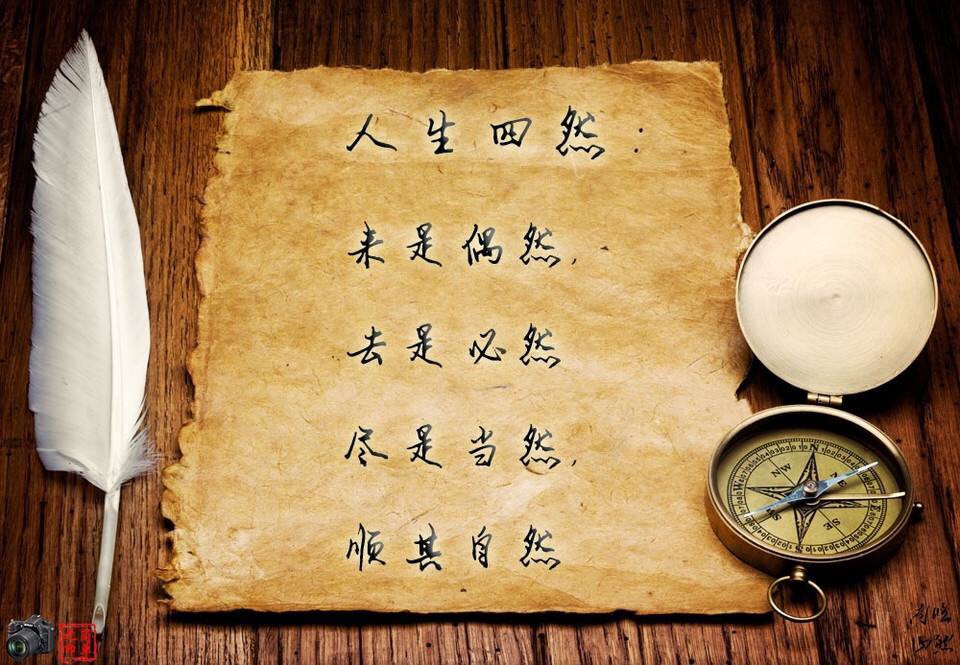 人生四然：
来是偶然，
去是必然
尽是当然，
顺其自然
N
NE
SE
S
NW